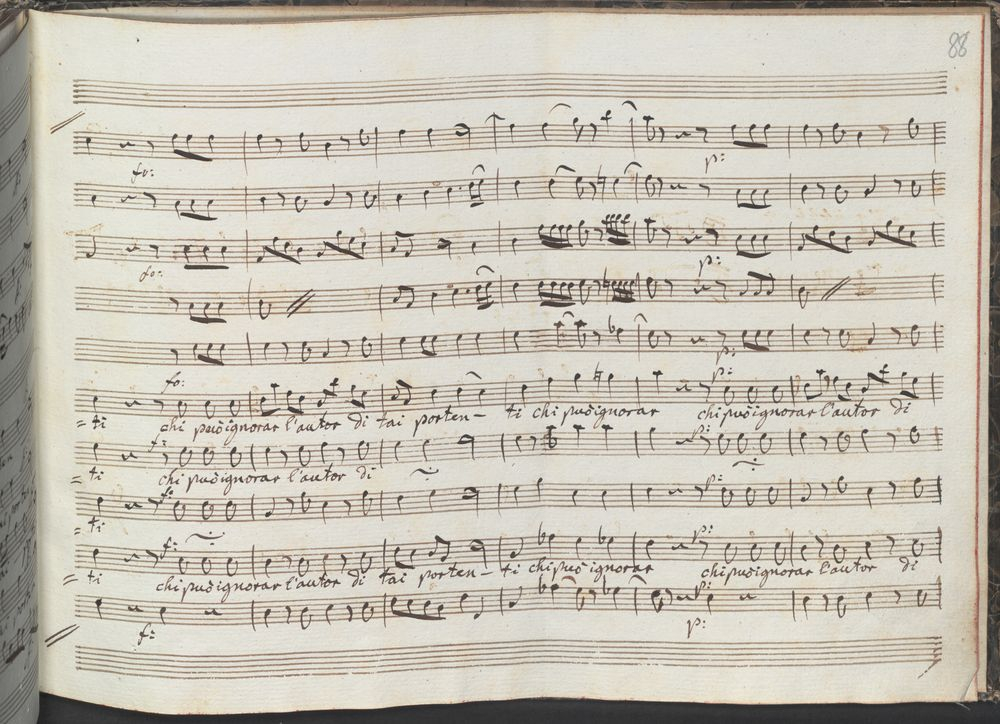 88
fo:
p:
fo:
p:
p:
fo:
p:
= ti chi può ignorar l'autor di tai porten- ti chi può ignorar chi può ignorar l'autor di
f:
p:
= ti chi può ignorar l'autor di
f:
p:
= ti
f:
p:
= ti chi può ignorar l'autor di tai porten- ti chi può ignorar chi può ignorar l'autor di
p:
f:
p: